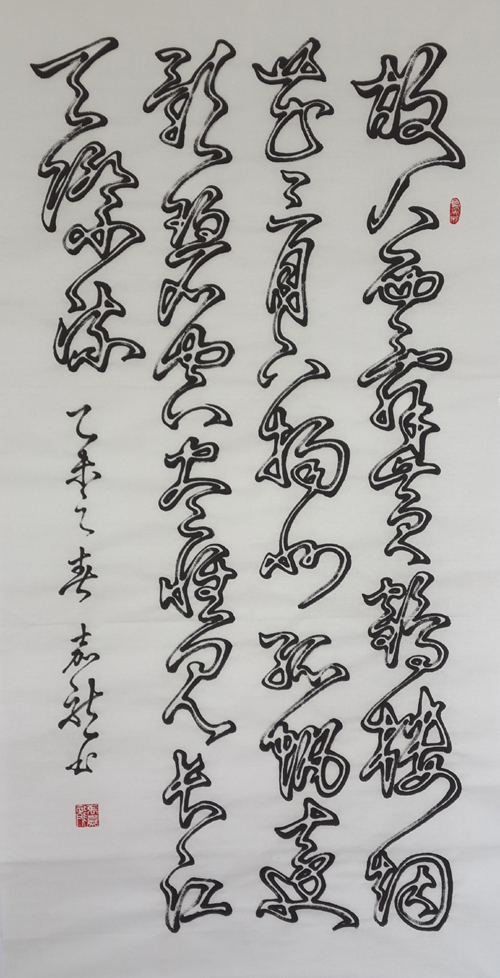 故人西辞黄鹤楼烟
花三月下扬州孤帆远
影碧空尽惟见长江
天际流 乙未之春 嘉 书